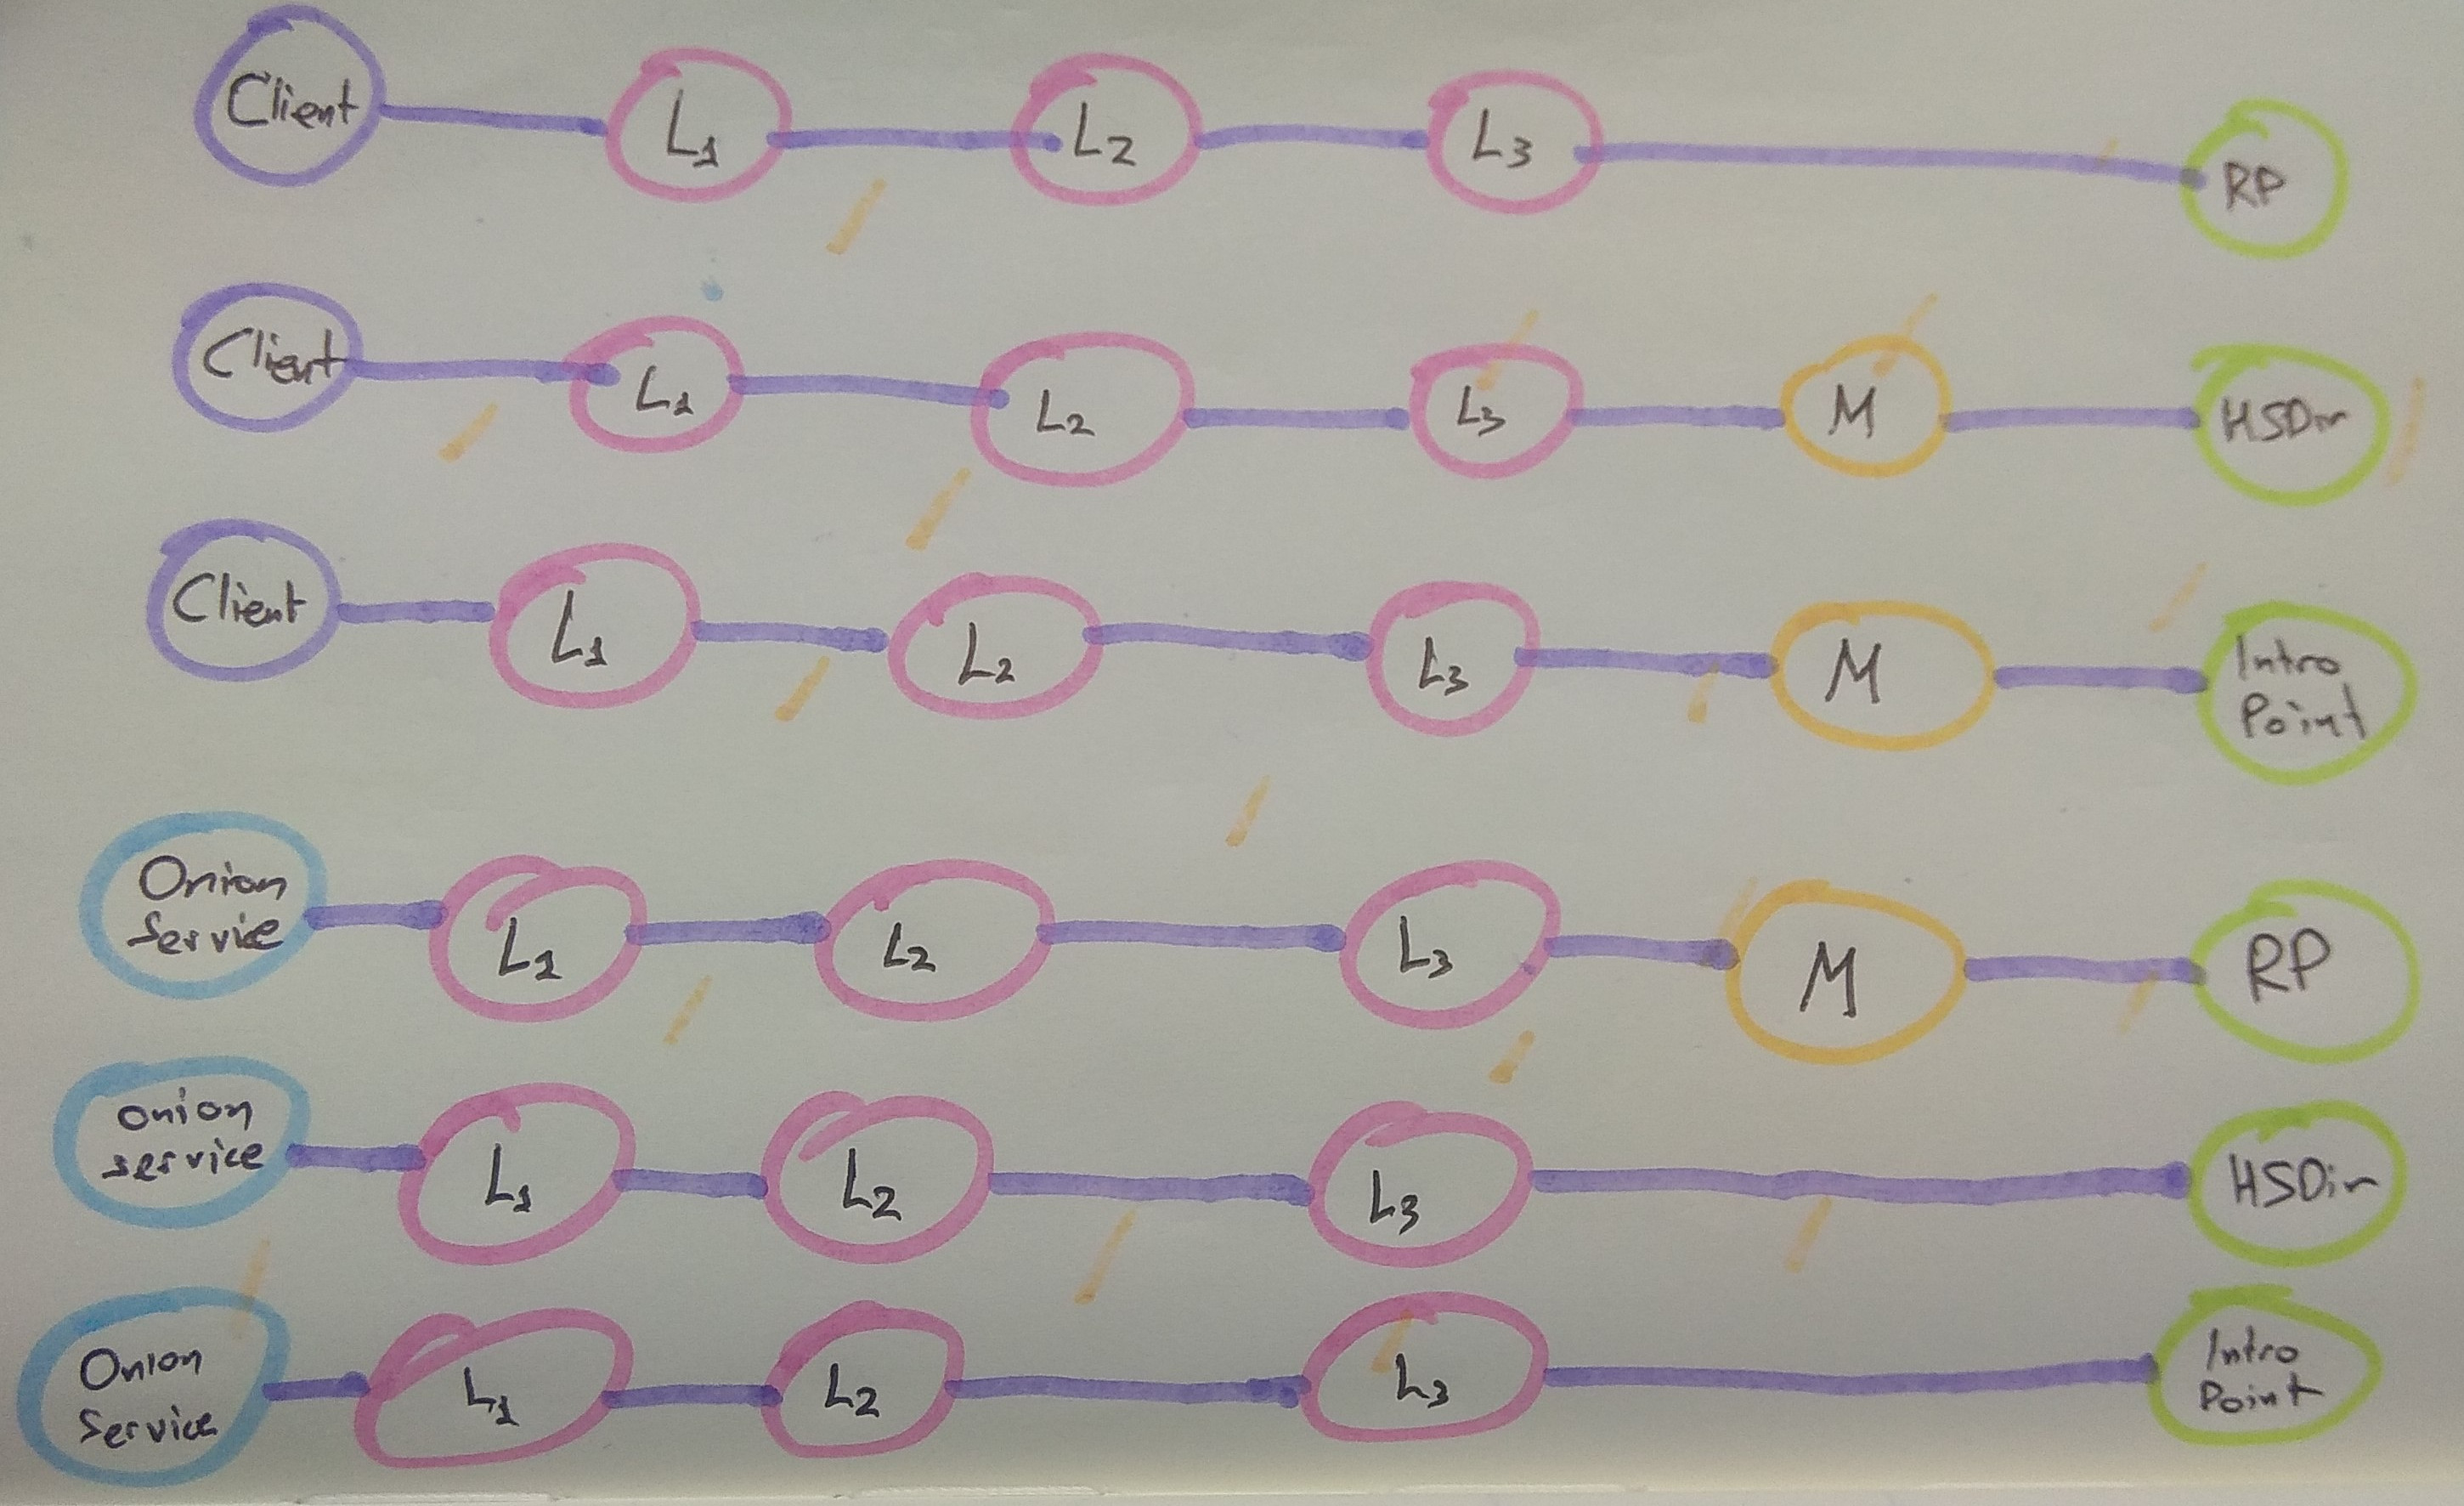 Client L1 L2 L3 RP
Client L1 L2 L3 M HSDir
Client L1 L2 L3 M Intro
Point
Onion
Service L1 L2 L3 M RP
onion
service L1 L2 L3 HSDir
Onion
Service L1 L2 L3 Intro
Point